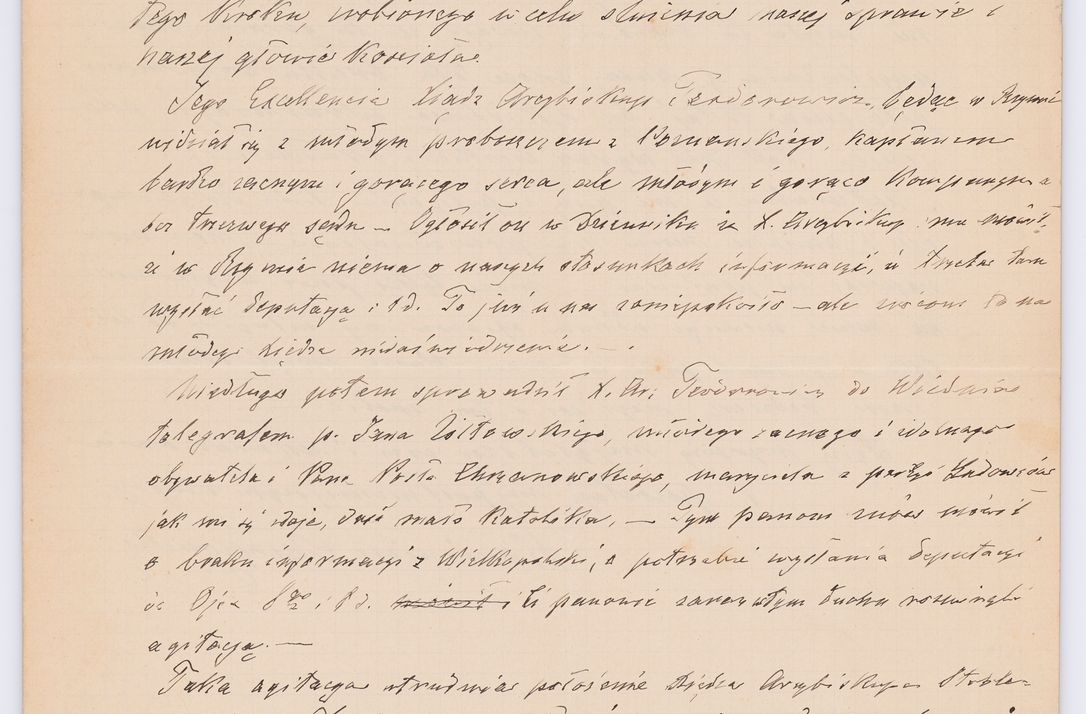 Jego kroku, zrobionego w celu służenia naszej sprawie i
naszej głowie Kościoła.
Jego Excellencia Ksiądz Arcybiskup Teodorowicz, będąc w Rzymie
widział się z młodym proboszczem z Poznańskiego, kapłanem
bardzo zacnym i gorącego serca, ale młodym i gorąco
bez trzeźwego sądu — Ogłosił on w Dzienniku że X. Arcybiskup mu mówił,
że w Rzymie niema o naszych stosunkach informacyi, iż trzeba tam
wysłać deputacyą i t.d. To już u nas zaniepokoiło — ale na
młodego księdza niedoświadczenie. —
Niedługo potem sprowadził X. Ar. Teodorowicz do Wiednia
telegrafem p. Jana Żółtowskiego, młodego zacnego i
obywatela i Pana Posła Chrzanowskiego, z partyi Ludowców
jak mi się zdaje, dość mało katolika, — Tym panom znów mówił
o braku informacyi z Wielkopolski, o potrzebie wysłania deputacyi
do Ojca i t.d. i Ci panowie zaraz w tym duchu rozwinęli
agitacyą. —
Taka agitacya utrudnia położenie Księdza Arcybiskupa